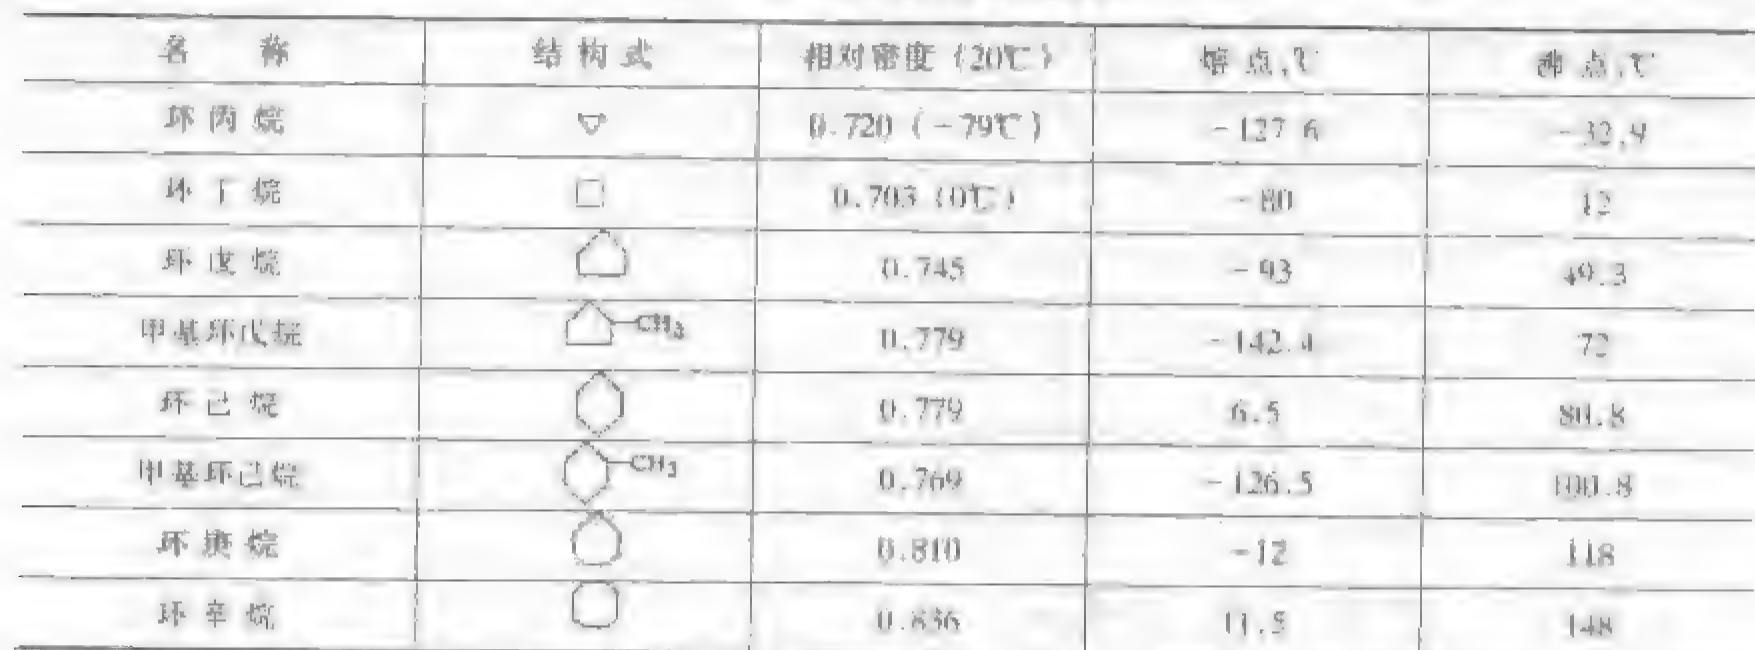 名 称 结构式 相对密度（20℃） 熔点,℃ 沸点,℃
环丙烷 0.720（-79℃） -127.6 -32.9
环丁烷 0.703（0℃） -80 12
环戊烷 0.745 -93 49.3
甲基环戊烷 CH₃ 0.779 -142.4 72
环己烷 0.779 6.5 80.8
甲基环己烷 CH₃ 0.769 -126.5 100.8
环庚烷 0.810 -12 118
环辛烷 0.836 11.5 148